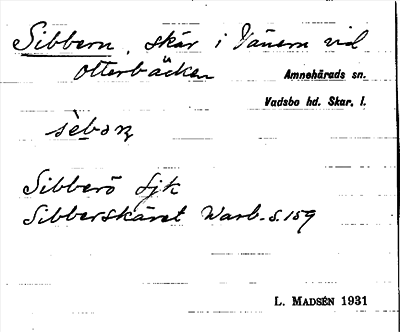 Sibbern, skär i Vänern vid
Otterbäcken
Amnehärads sn.
Vadsbo hd. Skar. l.
Sibberö Sjk
Sibberskäret Warb. s. 159
L. MADSÉN 1931